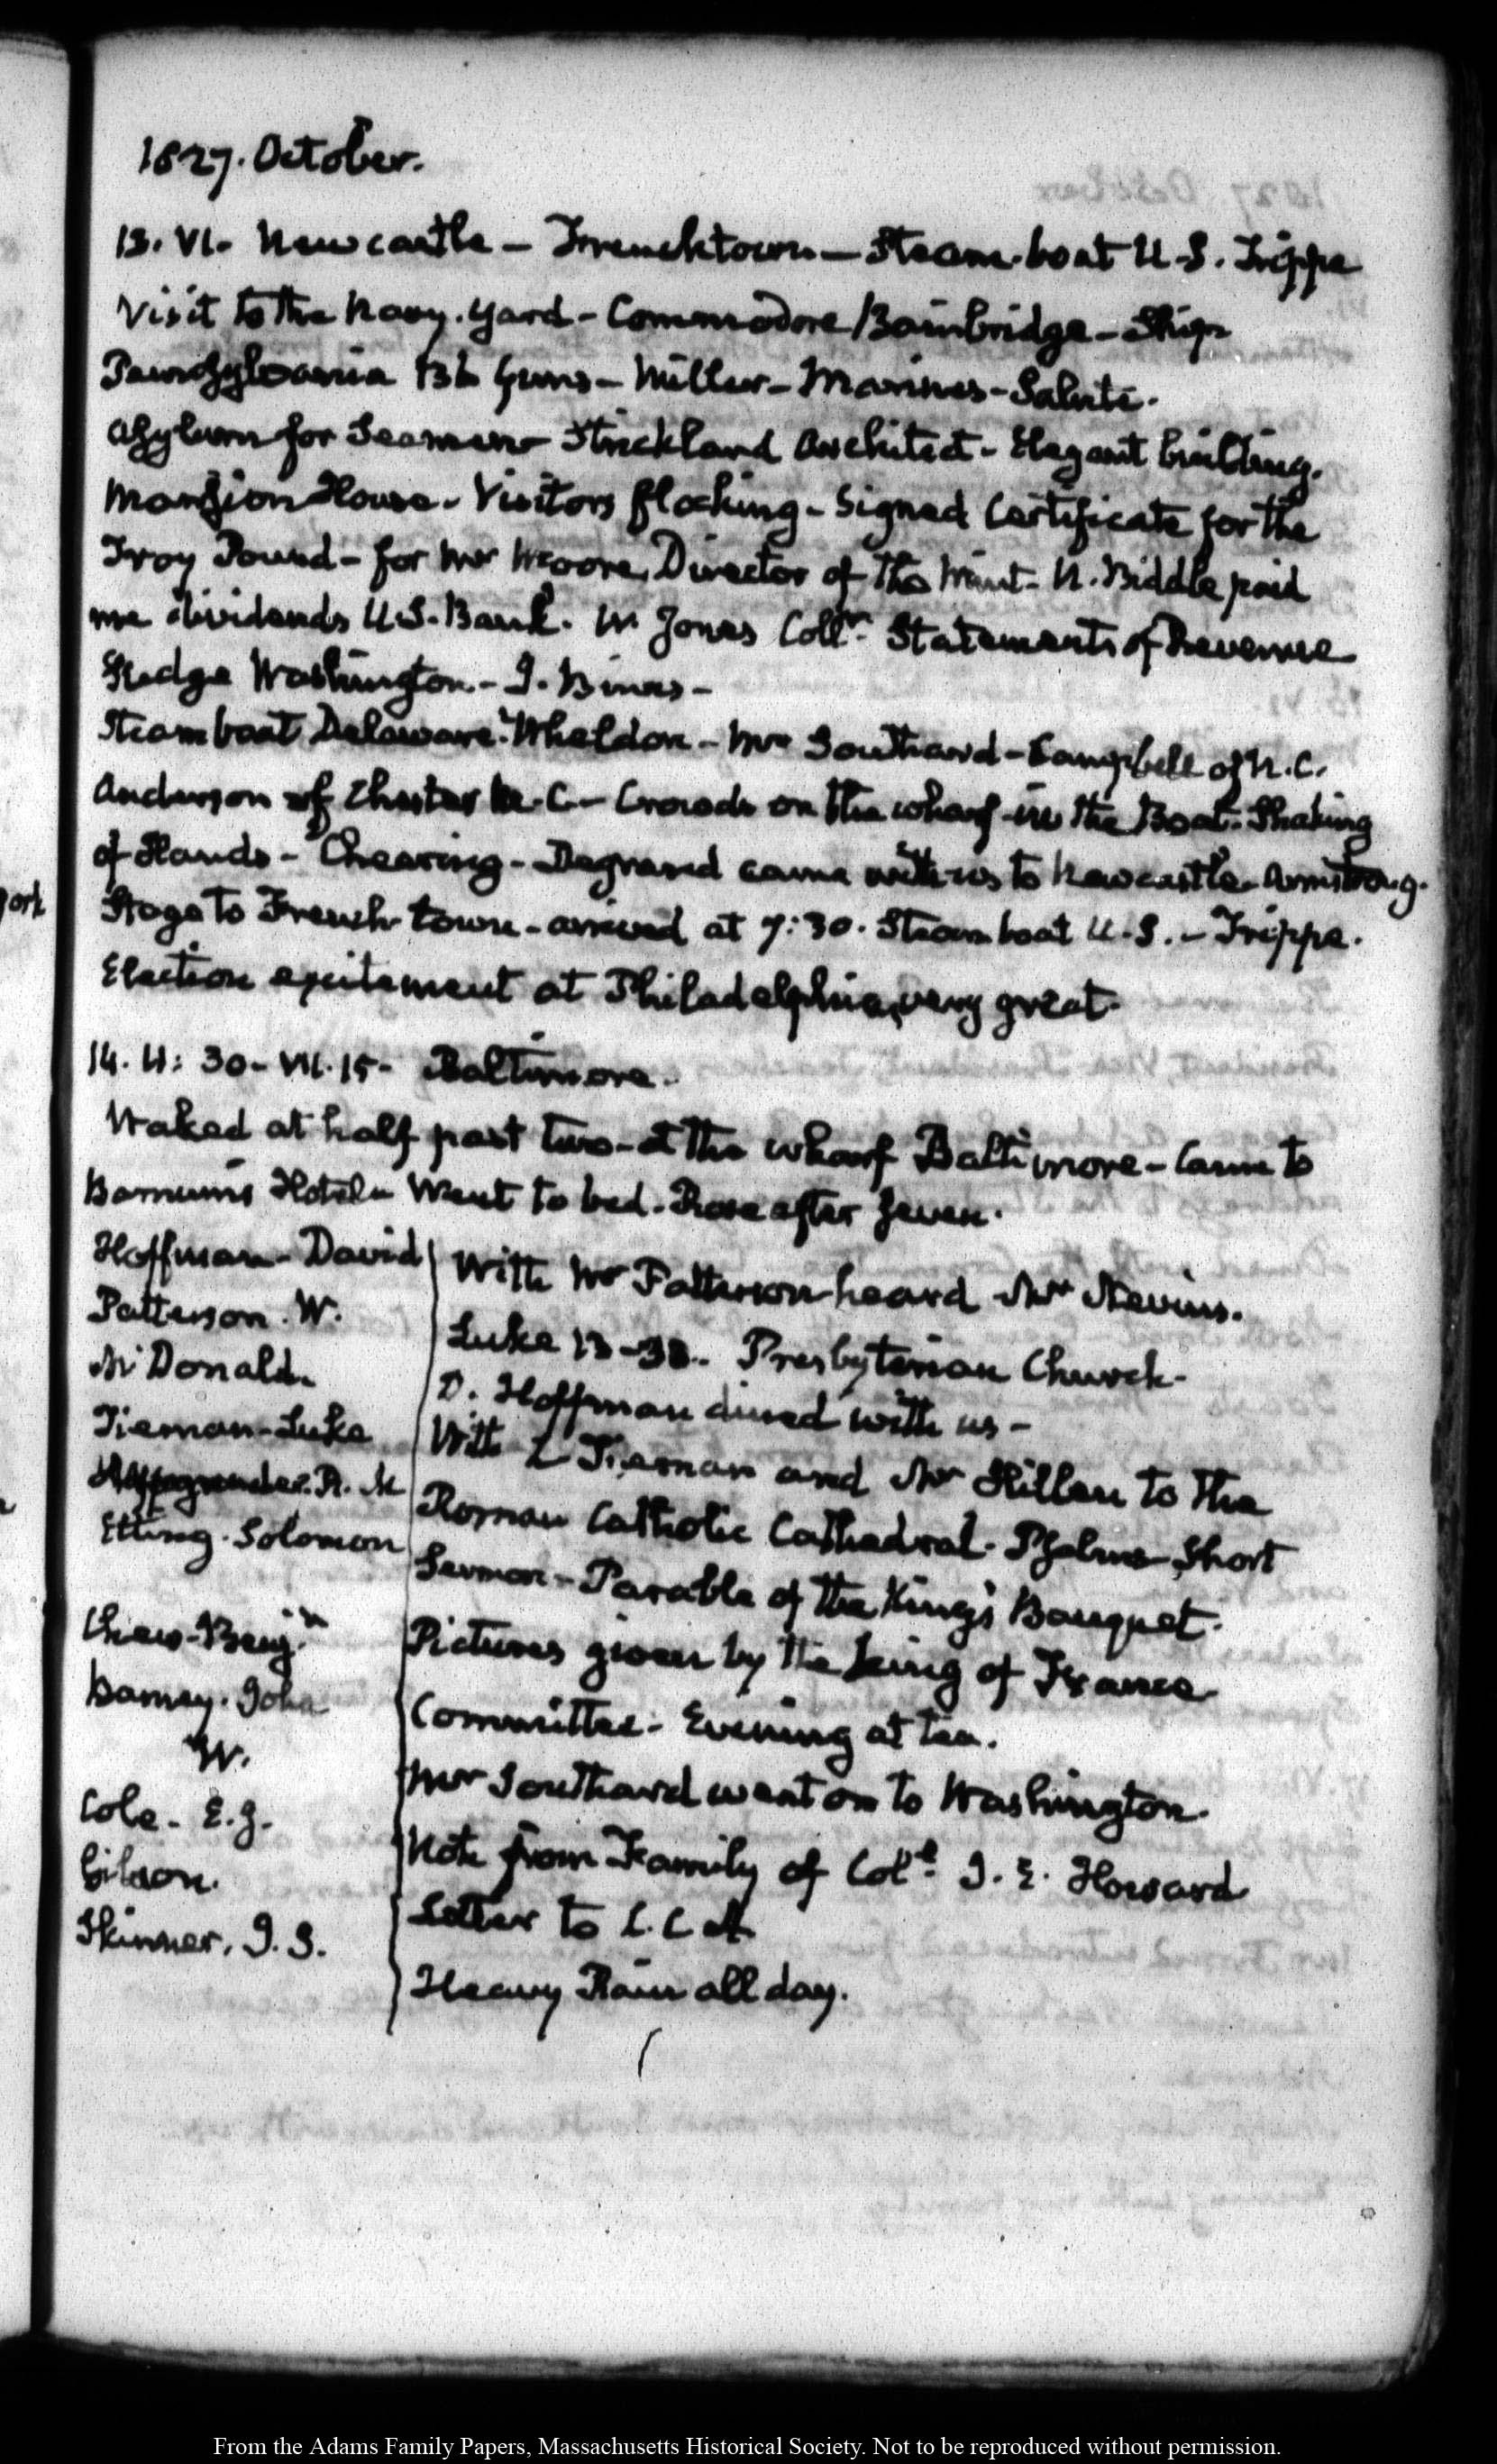 1827. October.
13. VI. Newcastle - Frenchtown - Steam-boat U.S. Trippe
Visit to the Navy-Yard - Commodore Bainbridge - Ship
Pennsylvania Guns - Miller - Marines - Salute.
Asylum for Seamen Strickland Architect - Elegant building.
Mansion House - Visitors flocking - Signed Certificate for the
Troy Pound - for Mr Moore, Director of the Mint - N. Biddle paid
me dividends U.S. Bank. W. Jones Collr. Statements of Revenue
Sledge Washington - J. Binns -
Steam boat Delaware. Wheldon - Mr Southard - Campbell of N.C.
Anderson of Chester M.C. - Crowds on the wharf - in the Boat - Shaking
of Hands - Cheering - Degrand came with us to Newcastle. Armstrong.
Stage to French town - arrived at 7:30. Steam boat U.S. - Trippe.
Election excitement at Philadelphia, very great.
14. 4: 30 - VII. 15 - Baltimore.
Waked at half past two - at the wharf Baltimore - Came to
Barnum's Hotel - Went to bed. Rose after Seven.
Hoffman - David
Patterson. W.
McDonald.
Tiernan - Luke
R. M
Etting. Solomon
Chew - Benjn
Barney. John
W.
Cole. E. G.
Gibson.
Skinner, J. S.
With Mr Patterson heard Mr Nevins.
Luke Presbyterian Church.
D. Hoffman dined with us -
With L Tiernan and Mr Hillen to the
Roman Catholic Cathedral. Psalms, Short
Sermon - Parable of the King's Banquet.
Pictures given by the King of France
Committee - Evening at tea.
Mr Southard went on to Washington.
Note from Family of Coll. J. E. Howard
Letter to L. C. A.
Heavy Rain all day.
From the Adams Family Papers, Massachusetts Historical Society. Not to be reproduced without permission.